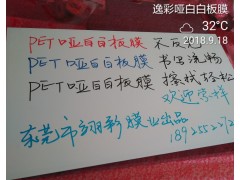 逸彩哑白白板膜
32°C
2018.9.18
PET哑白白板膜 不反
PET哑白白板膜 书写流畅
PET哑白白板膜 擦拭轻松
欢迎拿样
东莞市翊彩膜业出品